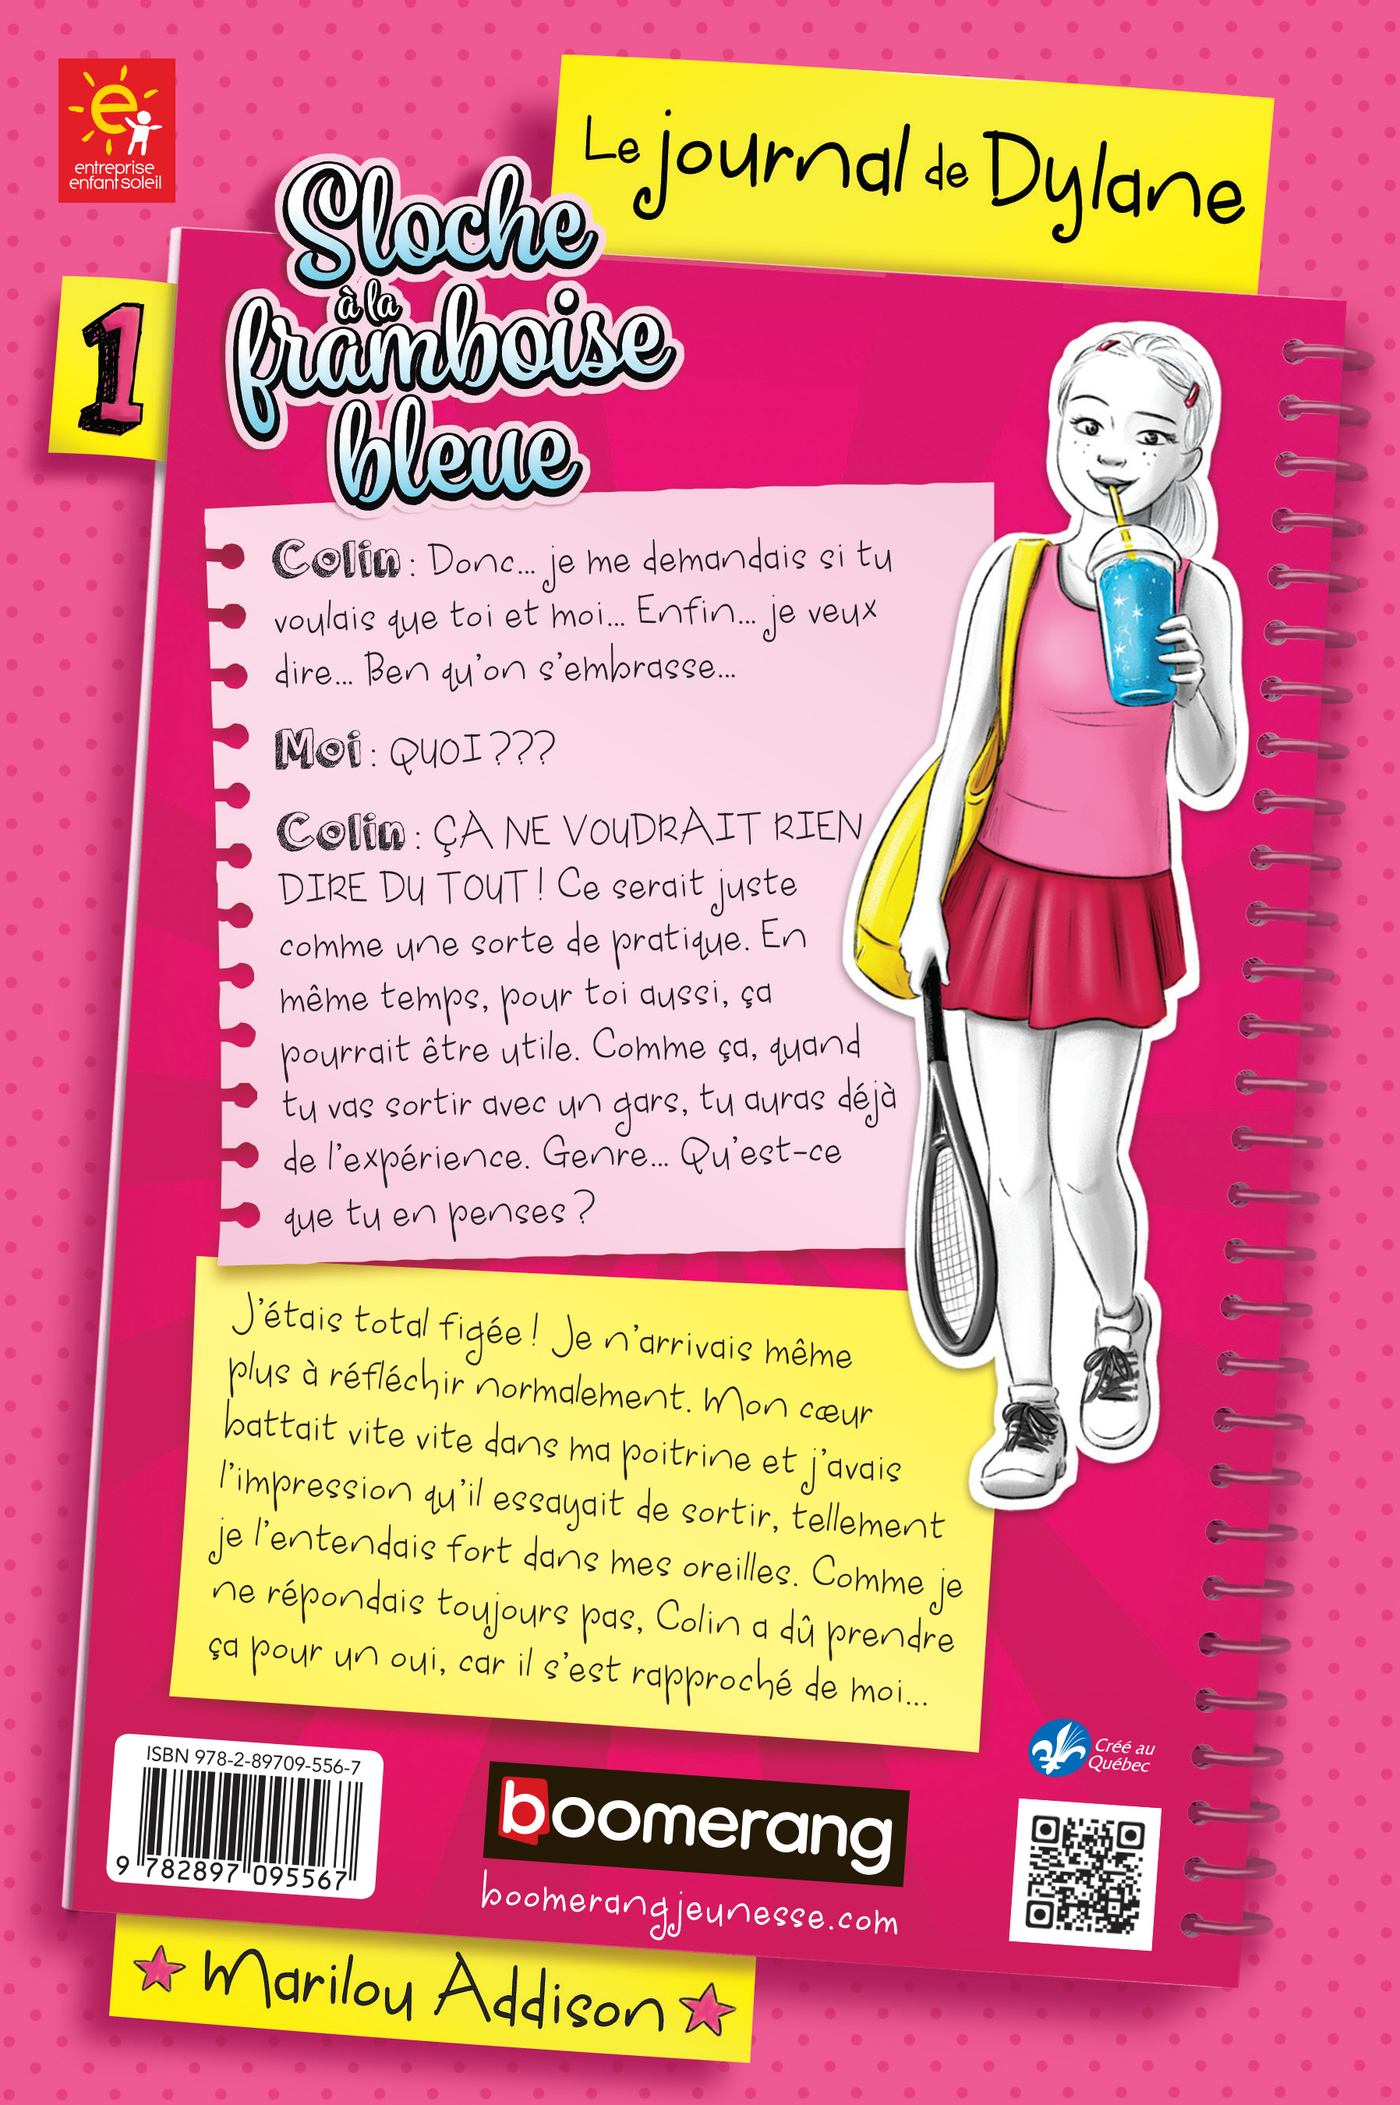 entreprise
enfant soleil
Le journal de Dylane
Sloche
à la
framboise
bleue
1
Colin : Donc... je me demandais si tu
voulais que toi et moi... Enfin... je veux
dire... Ben qu'on s'embrasse...
Moi : QUOI ???
Colin : ÇA NE VOUDRAIT RIEN
DIRE DU TOUT ! Ce serait juste
comme une sorte de pratique. En
même temps, pour toi aussi, ça
pourrait être utile. Comme ça, quand
tu vas sortir avec un gars, tu auras déjà
de l'expérience. Genre... Qu'est-ce
que tu en penses ?
J'étais total figée ! Je n'arrivais même
plus à réfléchir normalement. Mon cœur
battait vite vite dans ma poitrine et j'avais
l'impression qu'il essayait de sortir, tellement
je l'entendais fort dans mes oreilles. Comme je
ne répondais toujours pas, Colin a dû prendre
ça pour un oui, car il s'est rapproché de moi...
ISBN 978-2-89709-556-7
9 782897 095567
boomerang
boomerangjeunesse.com
Créé au
Québec
Marilou Addison